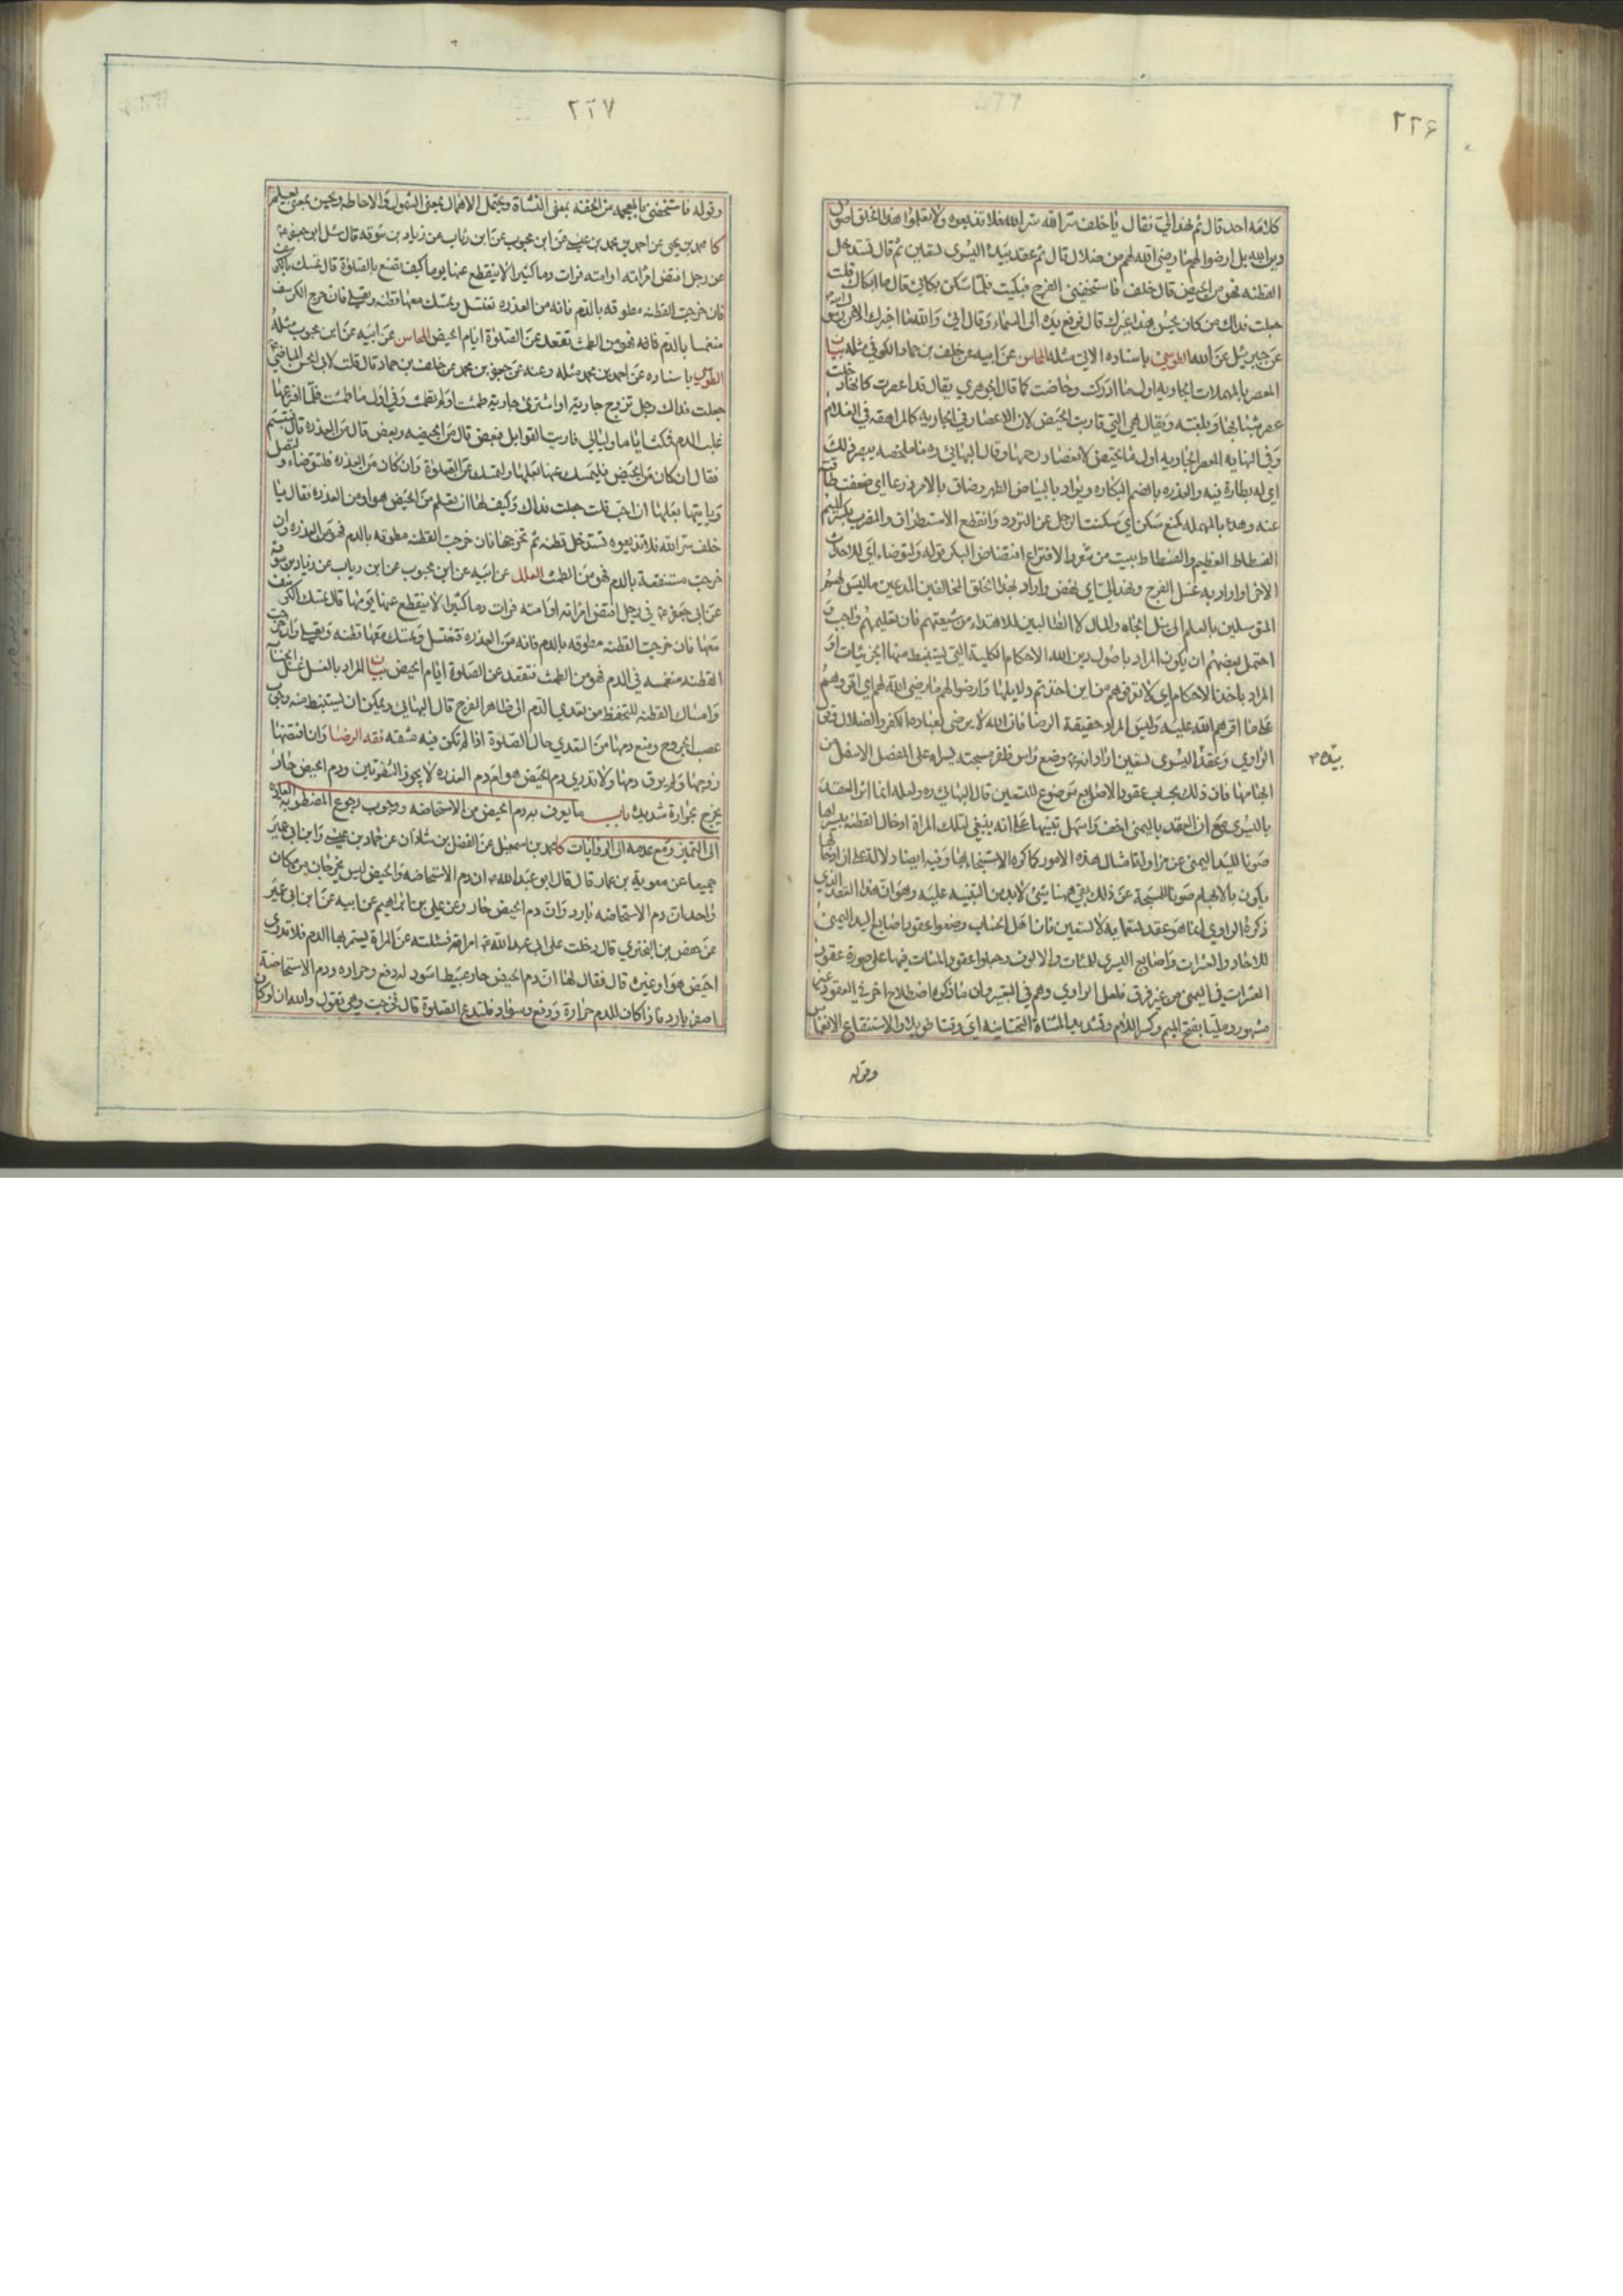 ٢٢۶
كلامه احد قال ثم نهد الي فقال يا خلف سر الله سر الله فلا تذيعوه ولا تعلموا هذا الخلق اصول
دين الله بل ارضوا لهم ما رضى الله لهم من ضلال قال ثم عقد بيده اليسرى تسعين ثم قال تستدخل
القطنه فهو من الحيض قال خلف فاستخفني الفرح فبكيت فلما سكن بكائي قال ما ابكاك قلت
جعلت فداك من كان يحسن هذا غيرك قال فرفع يده الى السماء وقال اني والله ما اخبرك الا عن رسول الله
عن جبرئيل عن الله الطوسي باسناده الاتي مثله المحاسن عن ابيه عن خلف بن حماد الكوفي مثله بيان
المعصر بالمهملات الجاريه اول ما ادركت وحاضت كما قال الجوهري يقال قد اعصرت كانها دخلت
عصر شبابها او بلغته ويقال هي التي قاربت الحيض لان الاعصار في الجاريه كالمراهقه في الغلام
وفي النهايه المعصر الجاريه اول ما تحيض لانعصار رحمها وقال البهائي ره
اي له بطارة فيه والعذره بالضم البكاره ويراد بالبياض الطهر وضاق بالامر ذرعا اي ضعفت طاقته
عنه وهدء بالمهمله كمنع سكن اي سكنت الرجل عن التردد وانقطع الاستطراق والمضرب بكسر الميم
الفسطاط العظيم والفسطاط بيت من شعر والافتراع افتضاض البكر وقوله ولتوضاء اي للاحداث
الاخر او اراد به غسل الفرج ونهد الي اي نهض واراد بهذا الخلق المخالفين المدعين ما ليس لهم
المتوسلين بالعلم الى نيل الجاه والمال لا الطالبين للاهتداء من شيعتهم فان تعليمهم واجب و
احتمل بعضهم ان يكون المراد باصول دين الله الاحكام الكلية التي يستنبط منها الجزئيات او
المراد ماخذ الاحكام اي لا تعرفوهم من اين اخذتم دلايلها وارضوا لهم ما رضى الله لهم اي اقروهم
على ما اقرهم الله عليه وليس المراد حقيقة الرضا فان الله لا يرضى لعباده الكفر والضلال
الراوي وعقد اليسوى تسعين اراد انه وضع راس ظفر مسبحة يسراه على المفصل الاسفل من
بيده
ابهامها فان ذلك بحساب عقود الاصابع موضوع للتسعين قال البهائي ره ولعله انما اثر العقد
باليسرى مع ان العقد باليمنى اخف واسهل تنبيها على انه ينبغي لتلك المراة ادخال القطنه بيسراها
صونا لليد اليمنى عن مزاولة امثال هذه الامور كما كره الاستنجاء بها وفيه ايضا دلالة على ان ادخالها
يكون بالابهام صونا للمسبحة عن ذلك بقي ههنا شيئ لا بد من التنبيه عليه وهو ان هذا العقد الذي
ذكره الراوي انما هو عقد تسعمايه لا تسعين فان اهل الحساب وضعوا عقود اصابع اليد اليمنى
للاحاد والعشرات واصابع اليسرى للمئات والالوف وجعلوا عقود المئات فيها على صورة عقود
العشرات في اليمنى من غير فرق فلعل الراوي وهم في التعبير وان ما ذكره اصطلاح اخر في العقود غير
مشهور ومليا بفتح الميم وكسر اللام وتشديد المثناة التحتانيه اي وقتا طويلا والاستنقاع الانغماس
وقوله
٢٢٧
وقوله فاستخفني بالمعجمه من الخفه بمعنى النشاة ويحتمل الاهمال بمعنى الشمول والاحاطه ويحسن بمعنى يعلم
كا محمد بن يحيى عن احمد بن محمد بن عيسى عن ابن محبوب عن ابن رئاب عن زياد بن سوقه قال سئل ابو جعفر
عن رجل افتض امراته او امته فرات دما كثيرا لا ينقطع عنها يوما كيف تصنع بالصلوة قال تمسك الكرسف
فان خرجت القطنه مطوقه بالدم فانه من العذره تغتسل وتمسك معها قطنه وتصلي فان خرج الكرسف
منغمسا بالدم فانه فهو من الطمث تقعد عن الصلوة ايام الحيض المحاسن عن ابيه عن ابن محبوب مثله
الطوسي باسناده عن احمد بن محمد مثله وعنه عن جعفر بن محمد عن خلف بن حماد قال قلت لابي الحسن الماضي
جعلت فداك رجل تزوج جاريته او اشترى جارية طمثت او لم تطمث وفي اول ما طمثت فلما افترعها
غلب الدم فمكث اياما وليالي فاريت القوابل فبعض قال من الحيضه وبعض قال من العذره قال فتبسم
فقال ان كان من الحيض فليمسك عنها بعلها ولتمسك عن الصلوة وان كان من العذره فلتتوضاء ولتصل
وياتيها بعلها ان احب قلت جعلت فداك وكيف لها ان تعلم من الحيض هو او من العذره فقال يا
خلف سر الله فلا تذيعوه تستدخل قطنه ثم تخرجها فان خرجت القطنه مطوقه بالدم فهو من العذره وان
خرجت مستنقعة بالدم فهو من الطمث العلل عن ابيه عن ابن محبوب عن ابن رياب عن زياد بن سوقه
عن ابي جعفر في رجل افتض امراته او امته فرات دما كثيرا لا ينقطع عنها يومها قال تمسك الكرسف
معها فان خرجت القطنه مطوقه بالدم فانه من العذره فتغتسل وتمسك معها قطنه وتصلي وان خرجت
القطنه منغمسه في الدم فهو من الطمث تقعد عن الصلوة ايام الحيض بيان المراد بالغسل غسل الجنابة
وامساك القطنه للتحفظ من تعدي الدم الى ظاهر الفرج قال البهائي ويمكن ان يستنبط منه وجوب
عصب الجروح ومنع دمها من التعدي حال الصلوة اذا لم تكن فيه مشقه فقه الرضا وان افتضها
زوجها ولم يرق دمها ولا تدري دم الحيض هو ام دم العذره
يخرج بحرارة شديدة باب ما يعرف به دم الحيض من الاستحاضه ووجوب رجوع المضطربه العادة
الى التميز ومع عدمه الى الروايات كا محمد بن اسمعيل عن الفضل بن شاذان عن حماد بن عيسى وابن ابي عمير
جميعا عن معوية بن عمار قال قال ابو عبد الله ان دم الاستحاضه والحيض ليس يخرجان من مكان
واحد ان دم الاستحاضه بارد وان دم الحيض حار وعن علي بن ابراهيم عن ابيه عن ابن ابي عمير
عن حفص بن البختري قال دخلت على ابي عبد الله امراة فسئلته عن المراة يستمر بها الدم فلا تدري
احيض هو او غيره قال فقال لها ان دم الحيض حار عبيط اسود له دفع وحراره ودم الاستحاضة
اصفر بارد فاذا كان للدم حرارة ودفع وسواد فلتدع الصلوة قال فخرجت وهي تقول والله ان لو كان